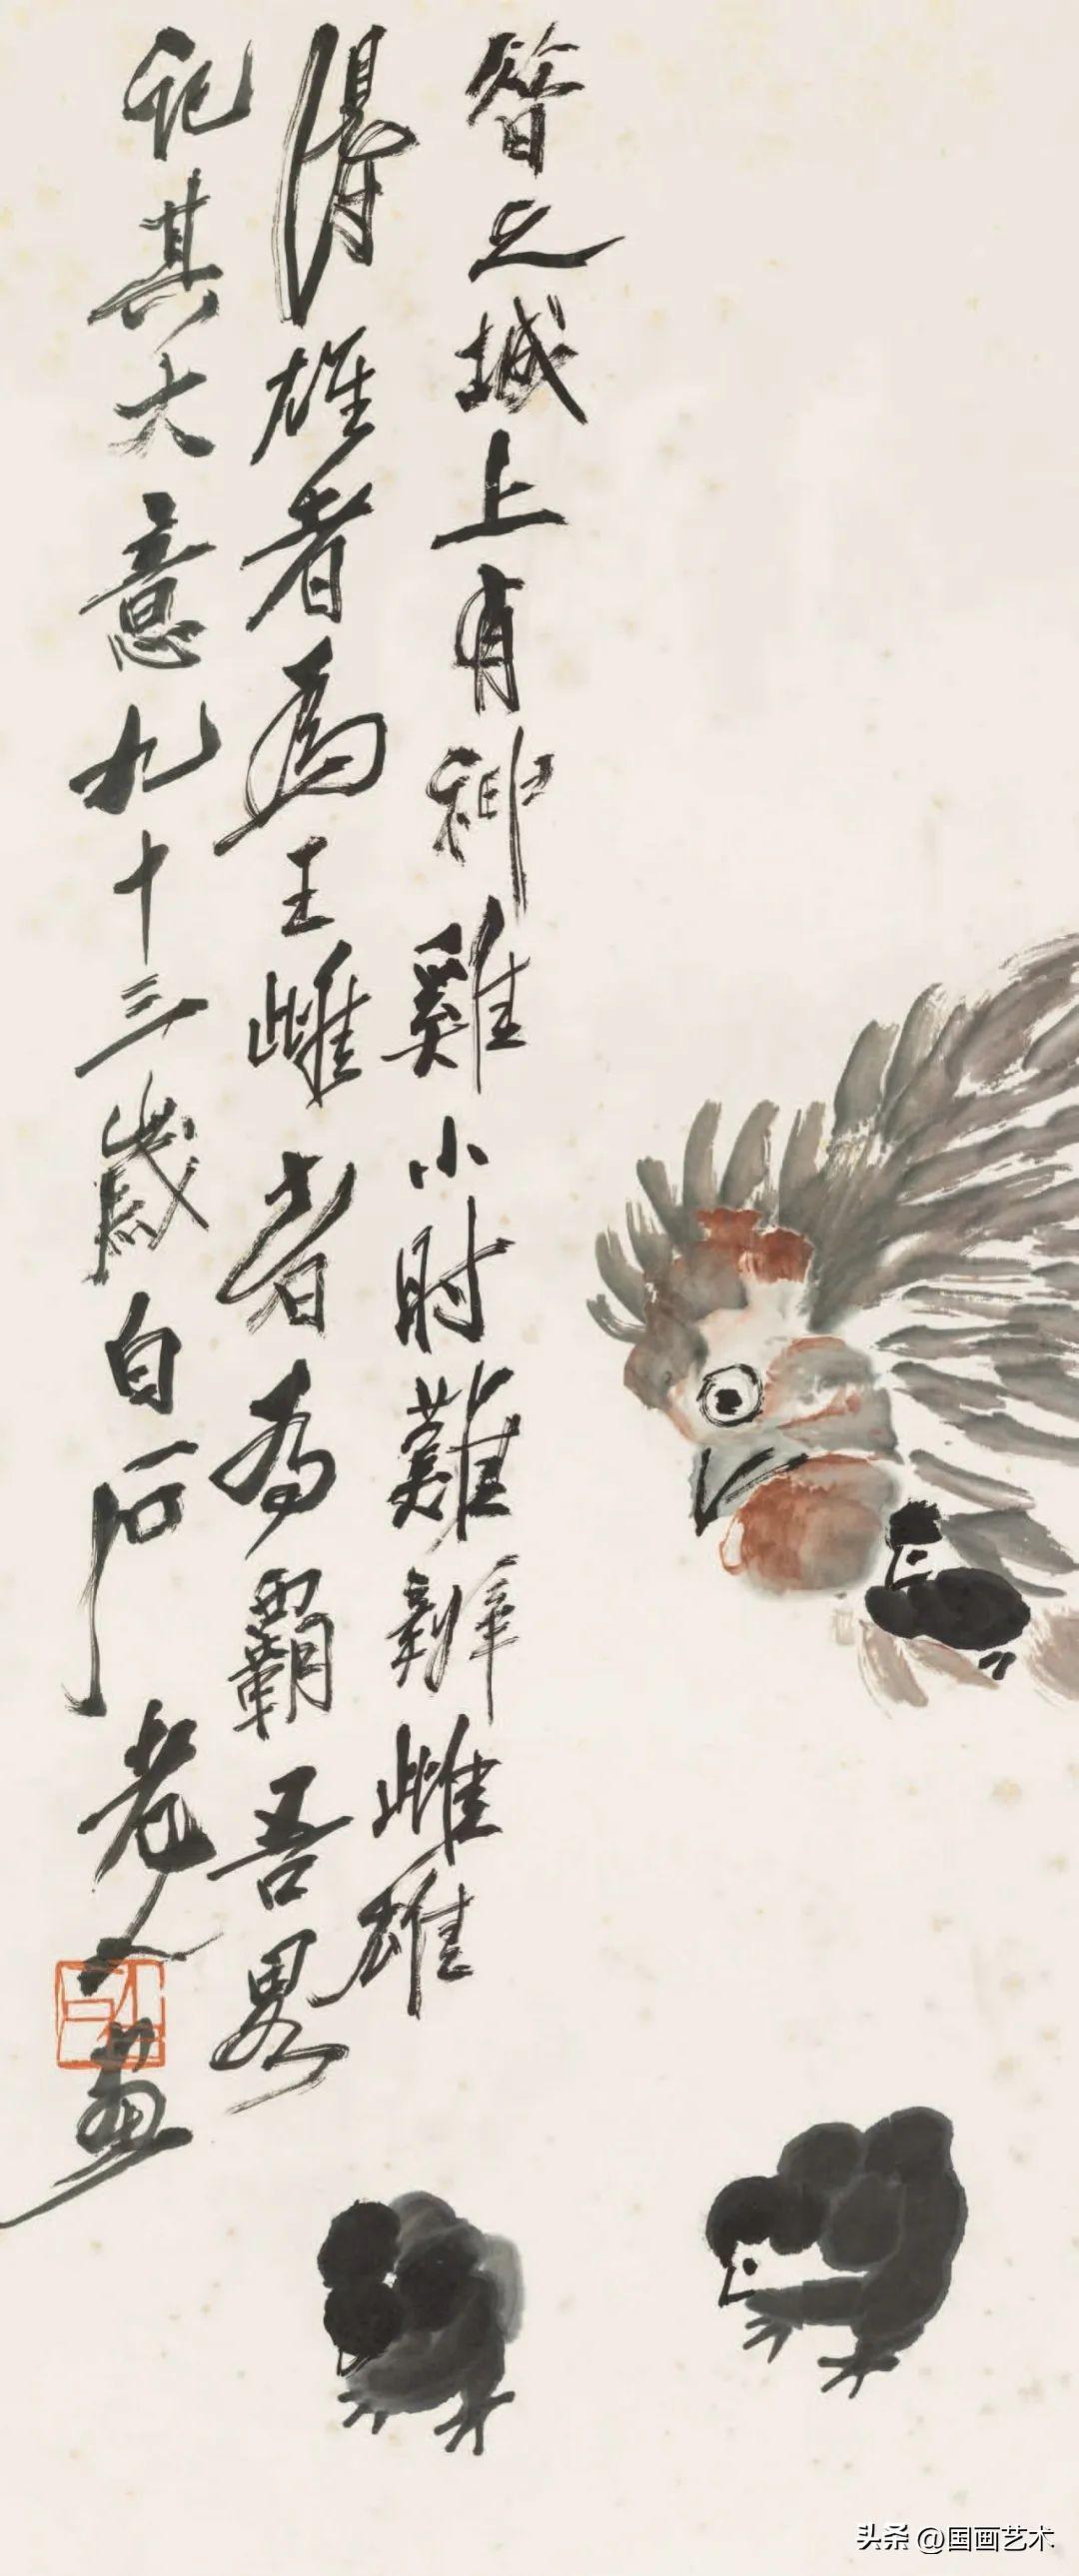 之城上有神雞小時難辨雌雄
得雄者為王雌者為霸吾畧
記其大意九十三歲白石老人畫
头条 @国画艺术